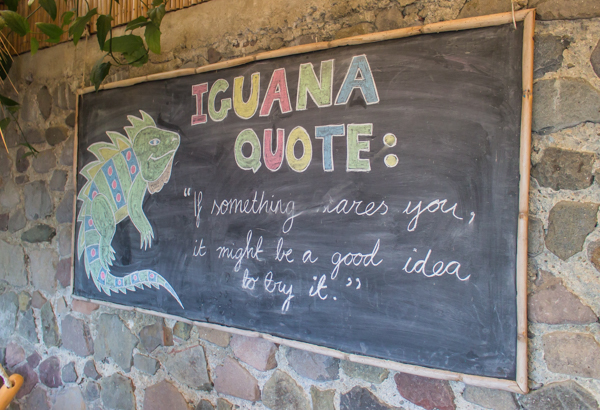 IGUANA
QUOTE:
"If something you,
it might be a good idea
to try it."